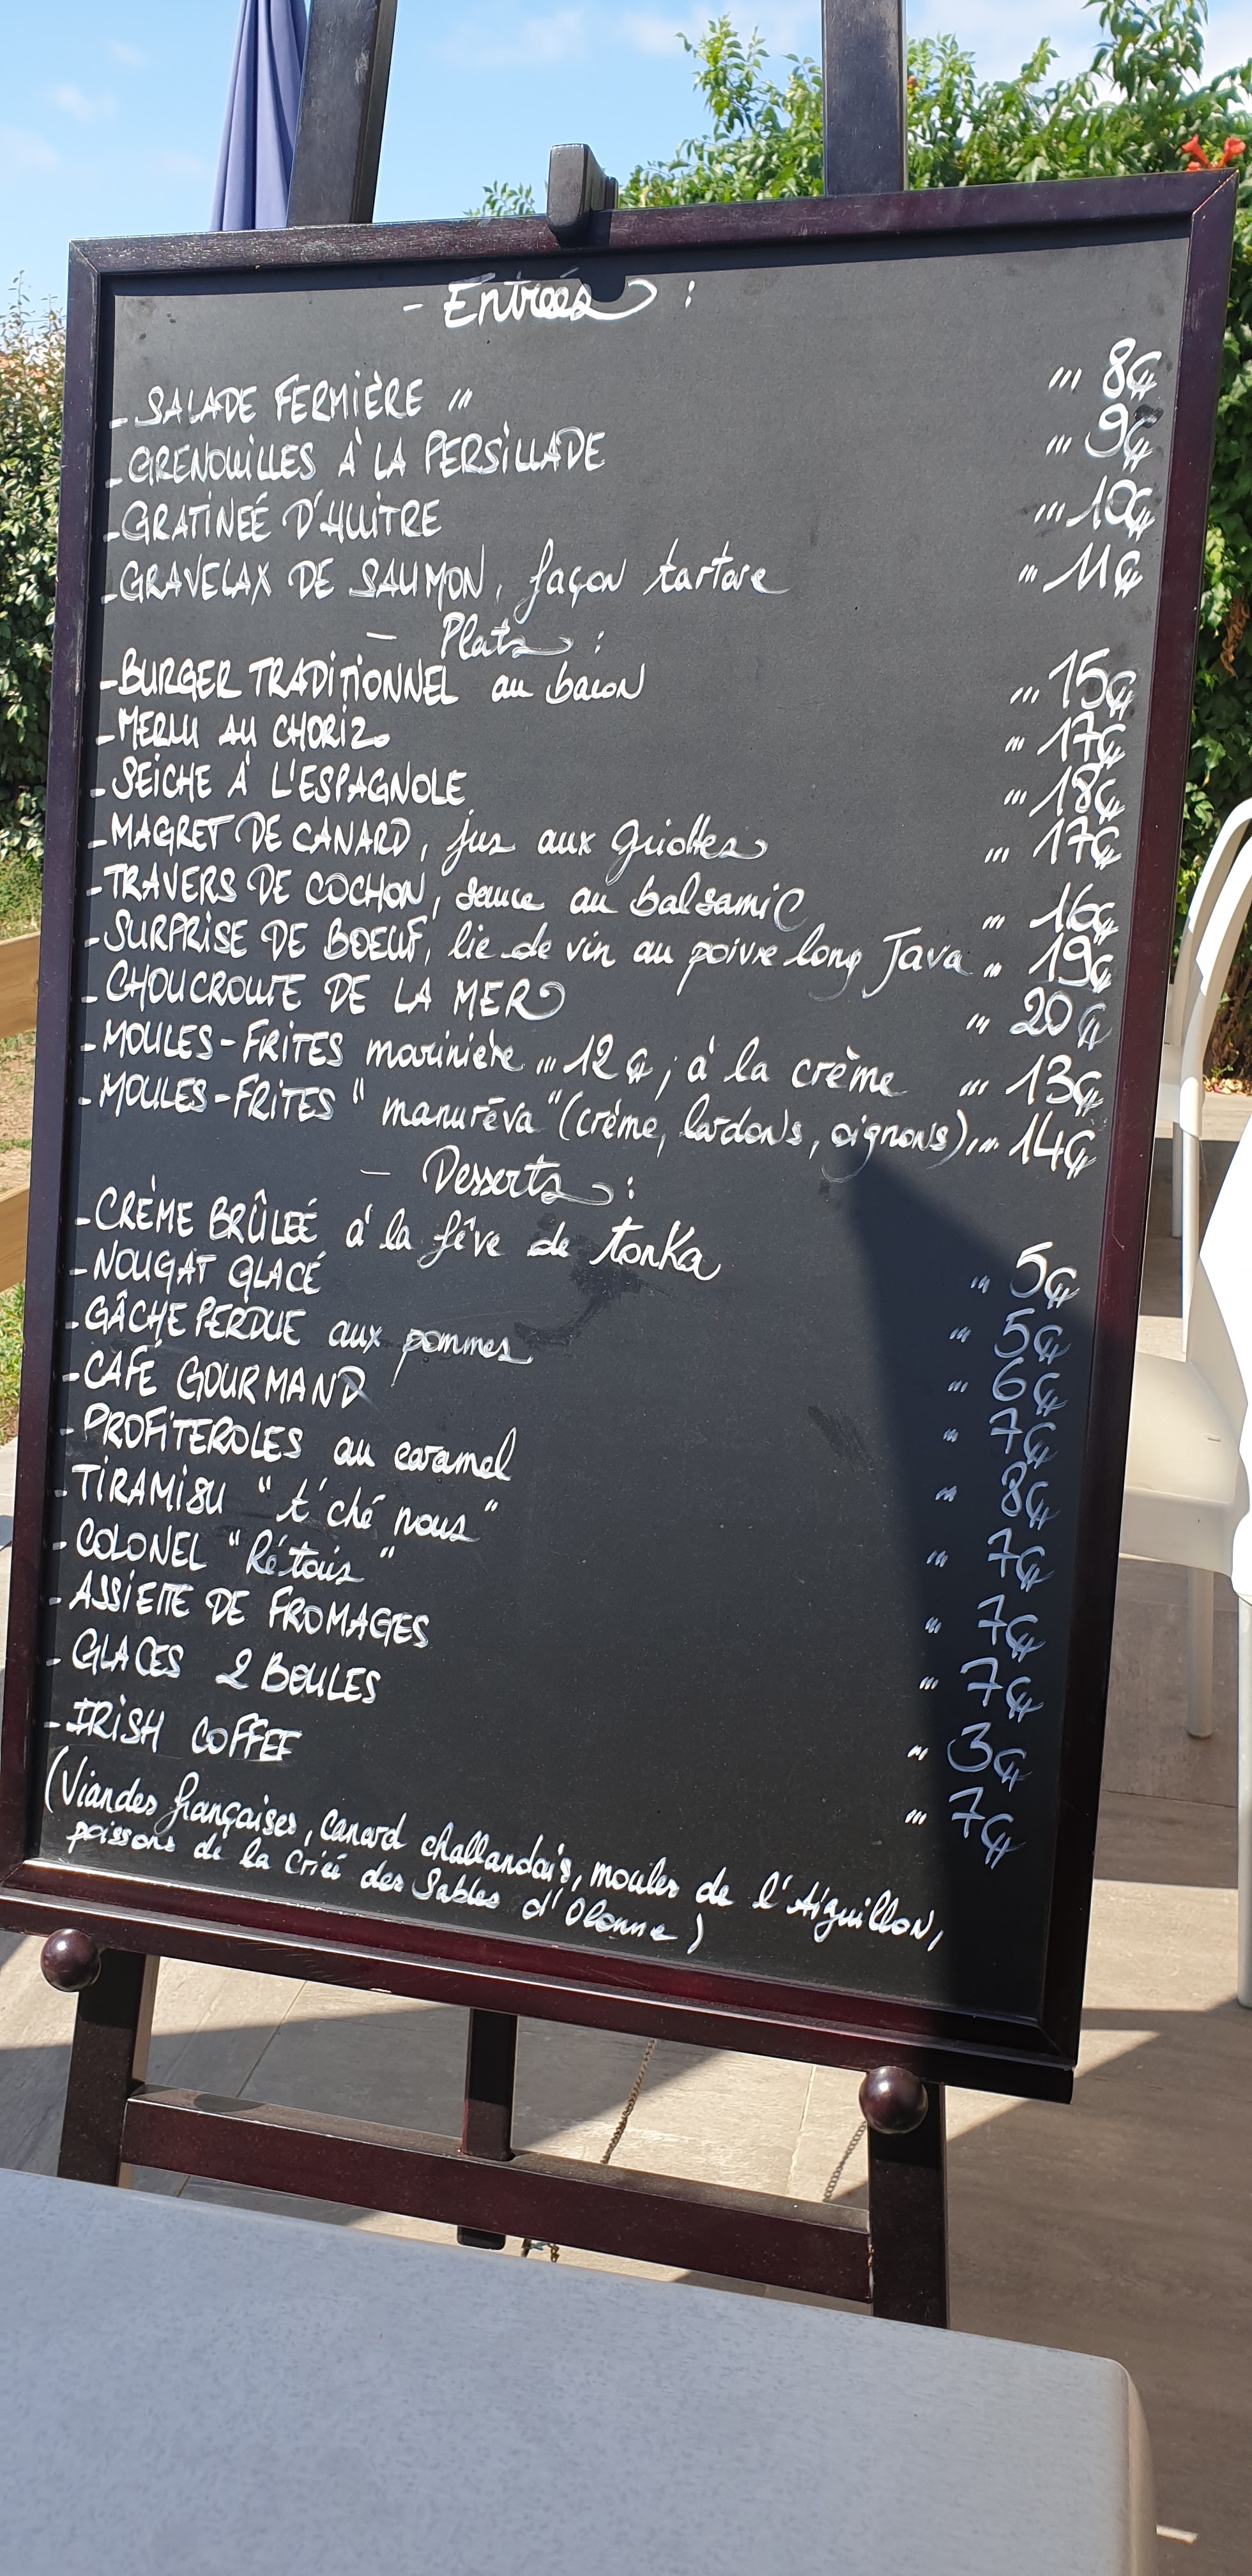 - Entrées :
- SALADE FERMIÈRE ,,, ,,, 8€
- GRENOUILLES À LA PERSILLADE ,,, 9€
- GRATINEÉ D'HUITRE ,,, 10€
- GRAVELAX DE SAUMON, façon tartare ,,, 11€
- Plats :
- BURGER TRADITIONNEL au bacon ,,, 15€
- MERLU AU CHORIZO ,,, 17€
- SEICHE À L'ESPAGNOLE ,,, 18€
- MAGRET DE CANARD, jus aux griottes ,,, 17€
- TRAVERS DE COCHON, sauce au balsamic ,,, 16€
- SURPRISE DE BOEUF, lie de vin au poivre long Java ,,, 19€
- CHOUCROUTE DE LA MER ,,, 20€
- MOULES-FRITES marinière ,,, 12€ ; à la crème ,,, 13€
- MOULES-FRITES "manurêva" (crème, lardons, oignons) ,,, 14€
- Desserts :
- CRÈME BRÛLEÉ à la fêve de tonKa ,,, 5€
- NOUGAT GLACÉ ,,, 5€
- GÂCHE PERDUE aux pommes ,,, 6€
- CAFÉ GOURMAND ,,, 7€
- PROFITEROLES au caramel ,,, 8€
- TIRAMISU "t'ché nous" ,,, 7€
- COLONEL "Rétais" ,,, 7€
- ASSIETTE DE FROMAGES ,,, 7€
- GLACES 2 BOULES ,,, 3€
- IRISH COFFEE ,,, 7€
(Viandes françaises, canard challandais, moules de l'Aiguillon,
poissons de la Crieé des Sables d'Olonne)